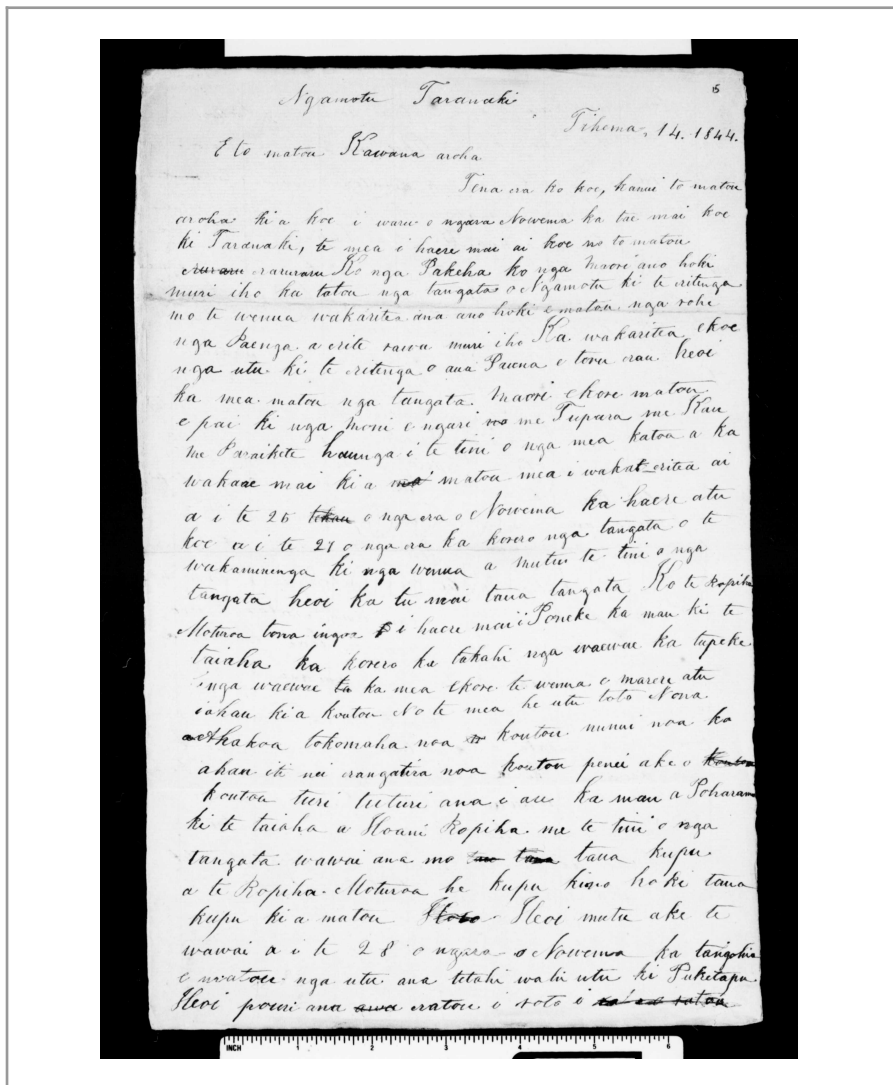 15
Ngamotu Taranaki
Tihema, 14. 1844.
E to matou Kawana aroha
Tena era ko koe, kanui to matou
aroha ki a koe i waru o ngara Nowema ka tae mai koe
ki Taranaki, te mea i haere mai ai koe no to matou
raruraru Ko nga Pakeha ko nga Maori ano hoki
muri iho ka tatou nga tangata o Ngamotu ki te ritenga
mo te wenua wakaritea ana ano hoki e matou nga rohe
nga Paenga a erite rawa muri iho Ka wakaritea ekoe
nga utu ki te ritenga o ana Pauna e toru rau heoi
ka mea matou nga tangata Maori ekore matou
e pai ki nga Moni e ngari me Tupara me Kau
me Paraikete haunga i te tini o nga mea katoa a ka
wakaae mai ki a matou mea i wakat-eritea ai
a i te 26 tekau o nga ra o Nowema ka haere atu
koe a i te 27 o nga ra ka korero nga tangata o te
wakaminenga ki nga wenua a mutu te tini o nga
tangata heoi ka tu mai taua tangata Ko te Ropiha
Moturoa tona ingoa i haere mai i Poneke ka mau ki te
taiaha ka korero ka takahi nga waewae ka tupeke
nga waewae ka mea Ekore te wenua e marere atu
iahau ki a koutou No te mea he utu toto Nona
Ahakoa tokomaha noa koutou nunui noa ko
ahau iti nei erangatira noa koutou penei ake o koutou
koutou turi tuturi ana i au ka mau a Poharama
ki te taiaha a Hoani Ropiha me te tini o nga
tangata wawai ana mo taua kupu
a te Ropiha Moturoa he kupu kino hoki taua
kupu ki a matou Heoi mutu ake te
wawai a i te 28 o ngara o Nowema ka tangohia
e matou nga utu ana tetahi wahi utu ki Puketapu
Heoi pouri ana eratou i roto i
INCH 1 2 3 4 5 6